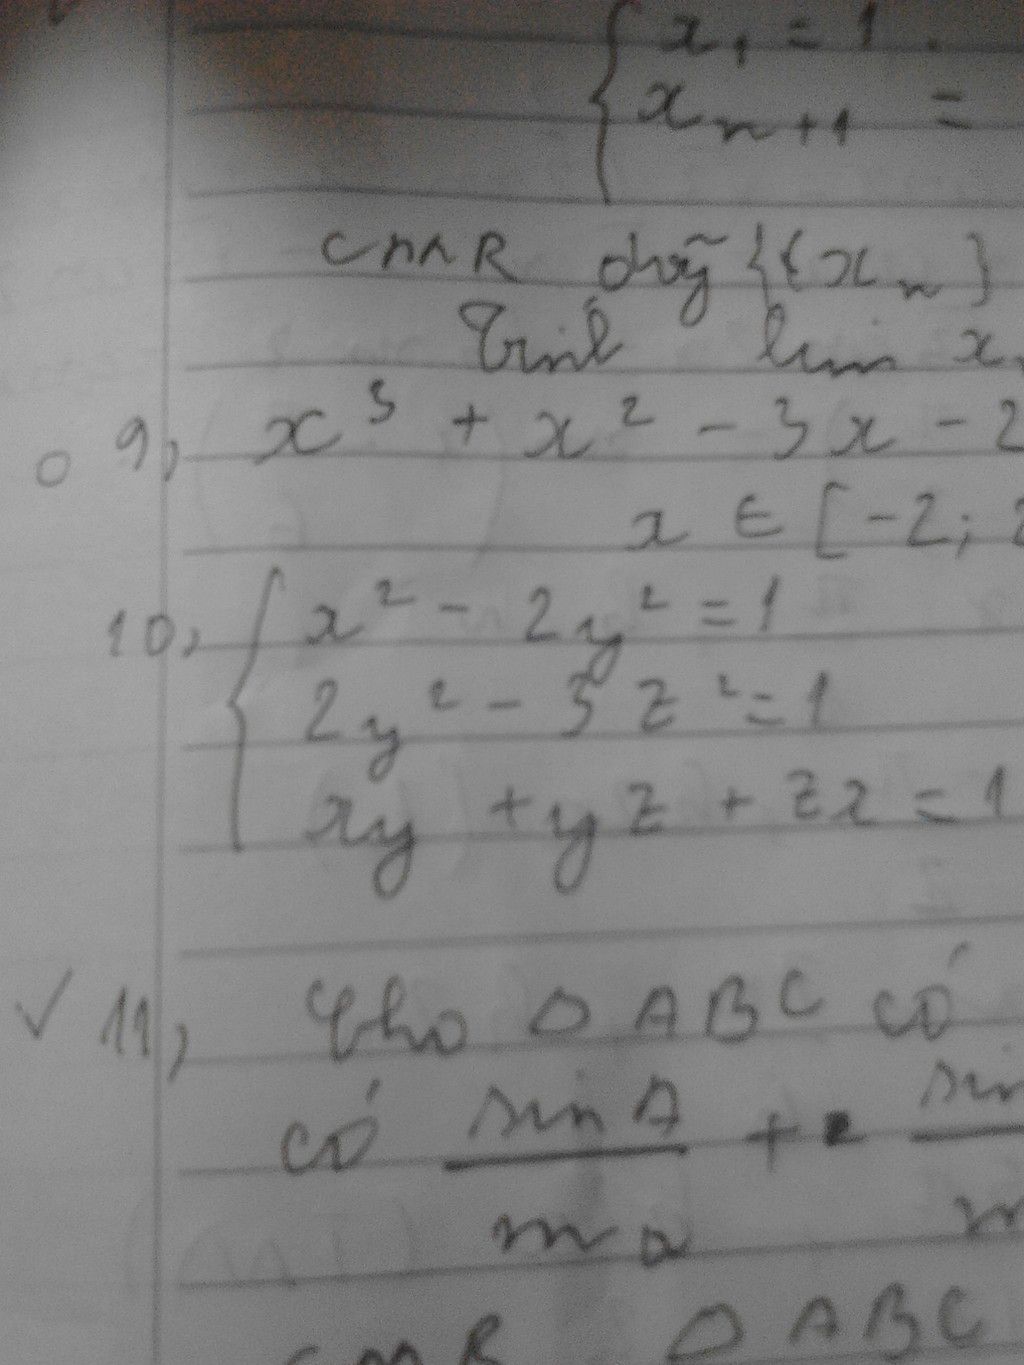 { x₁ = 1.
xₙ₊₁ =
CMR dãy {{xₙ}
Tính lim x
9, x³ + x² - 3x - 2
x ∈ [-2; 2
10, { x² - 2y² = 1
2y² - 3z² = 1
xy + yz + zx = 1
11, Cho △ ABC có
có sin A / mₐ + sin / m
CMR △ ABC